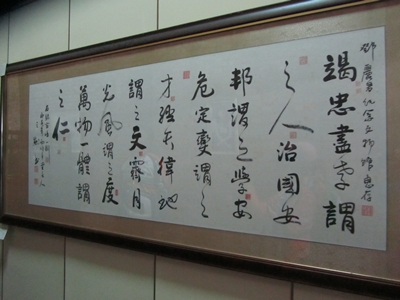 鄧麗君紀念文物館惠存
竭忠盡孝謂
之人治國安
邦謂之學安
危定變謂之
才經天緯地
謂之文霽月
光風謂之度
萬物一體謂
之仁